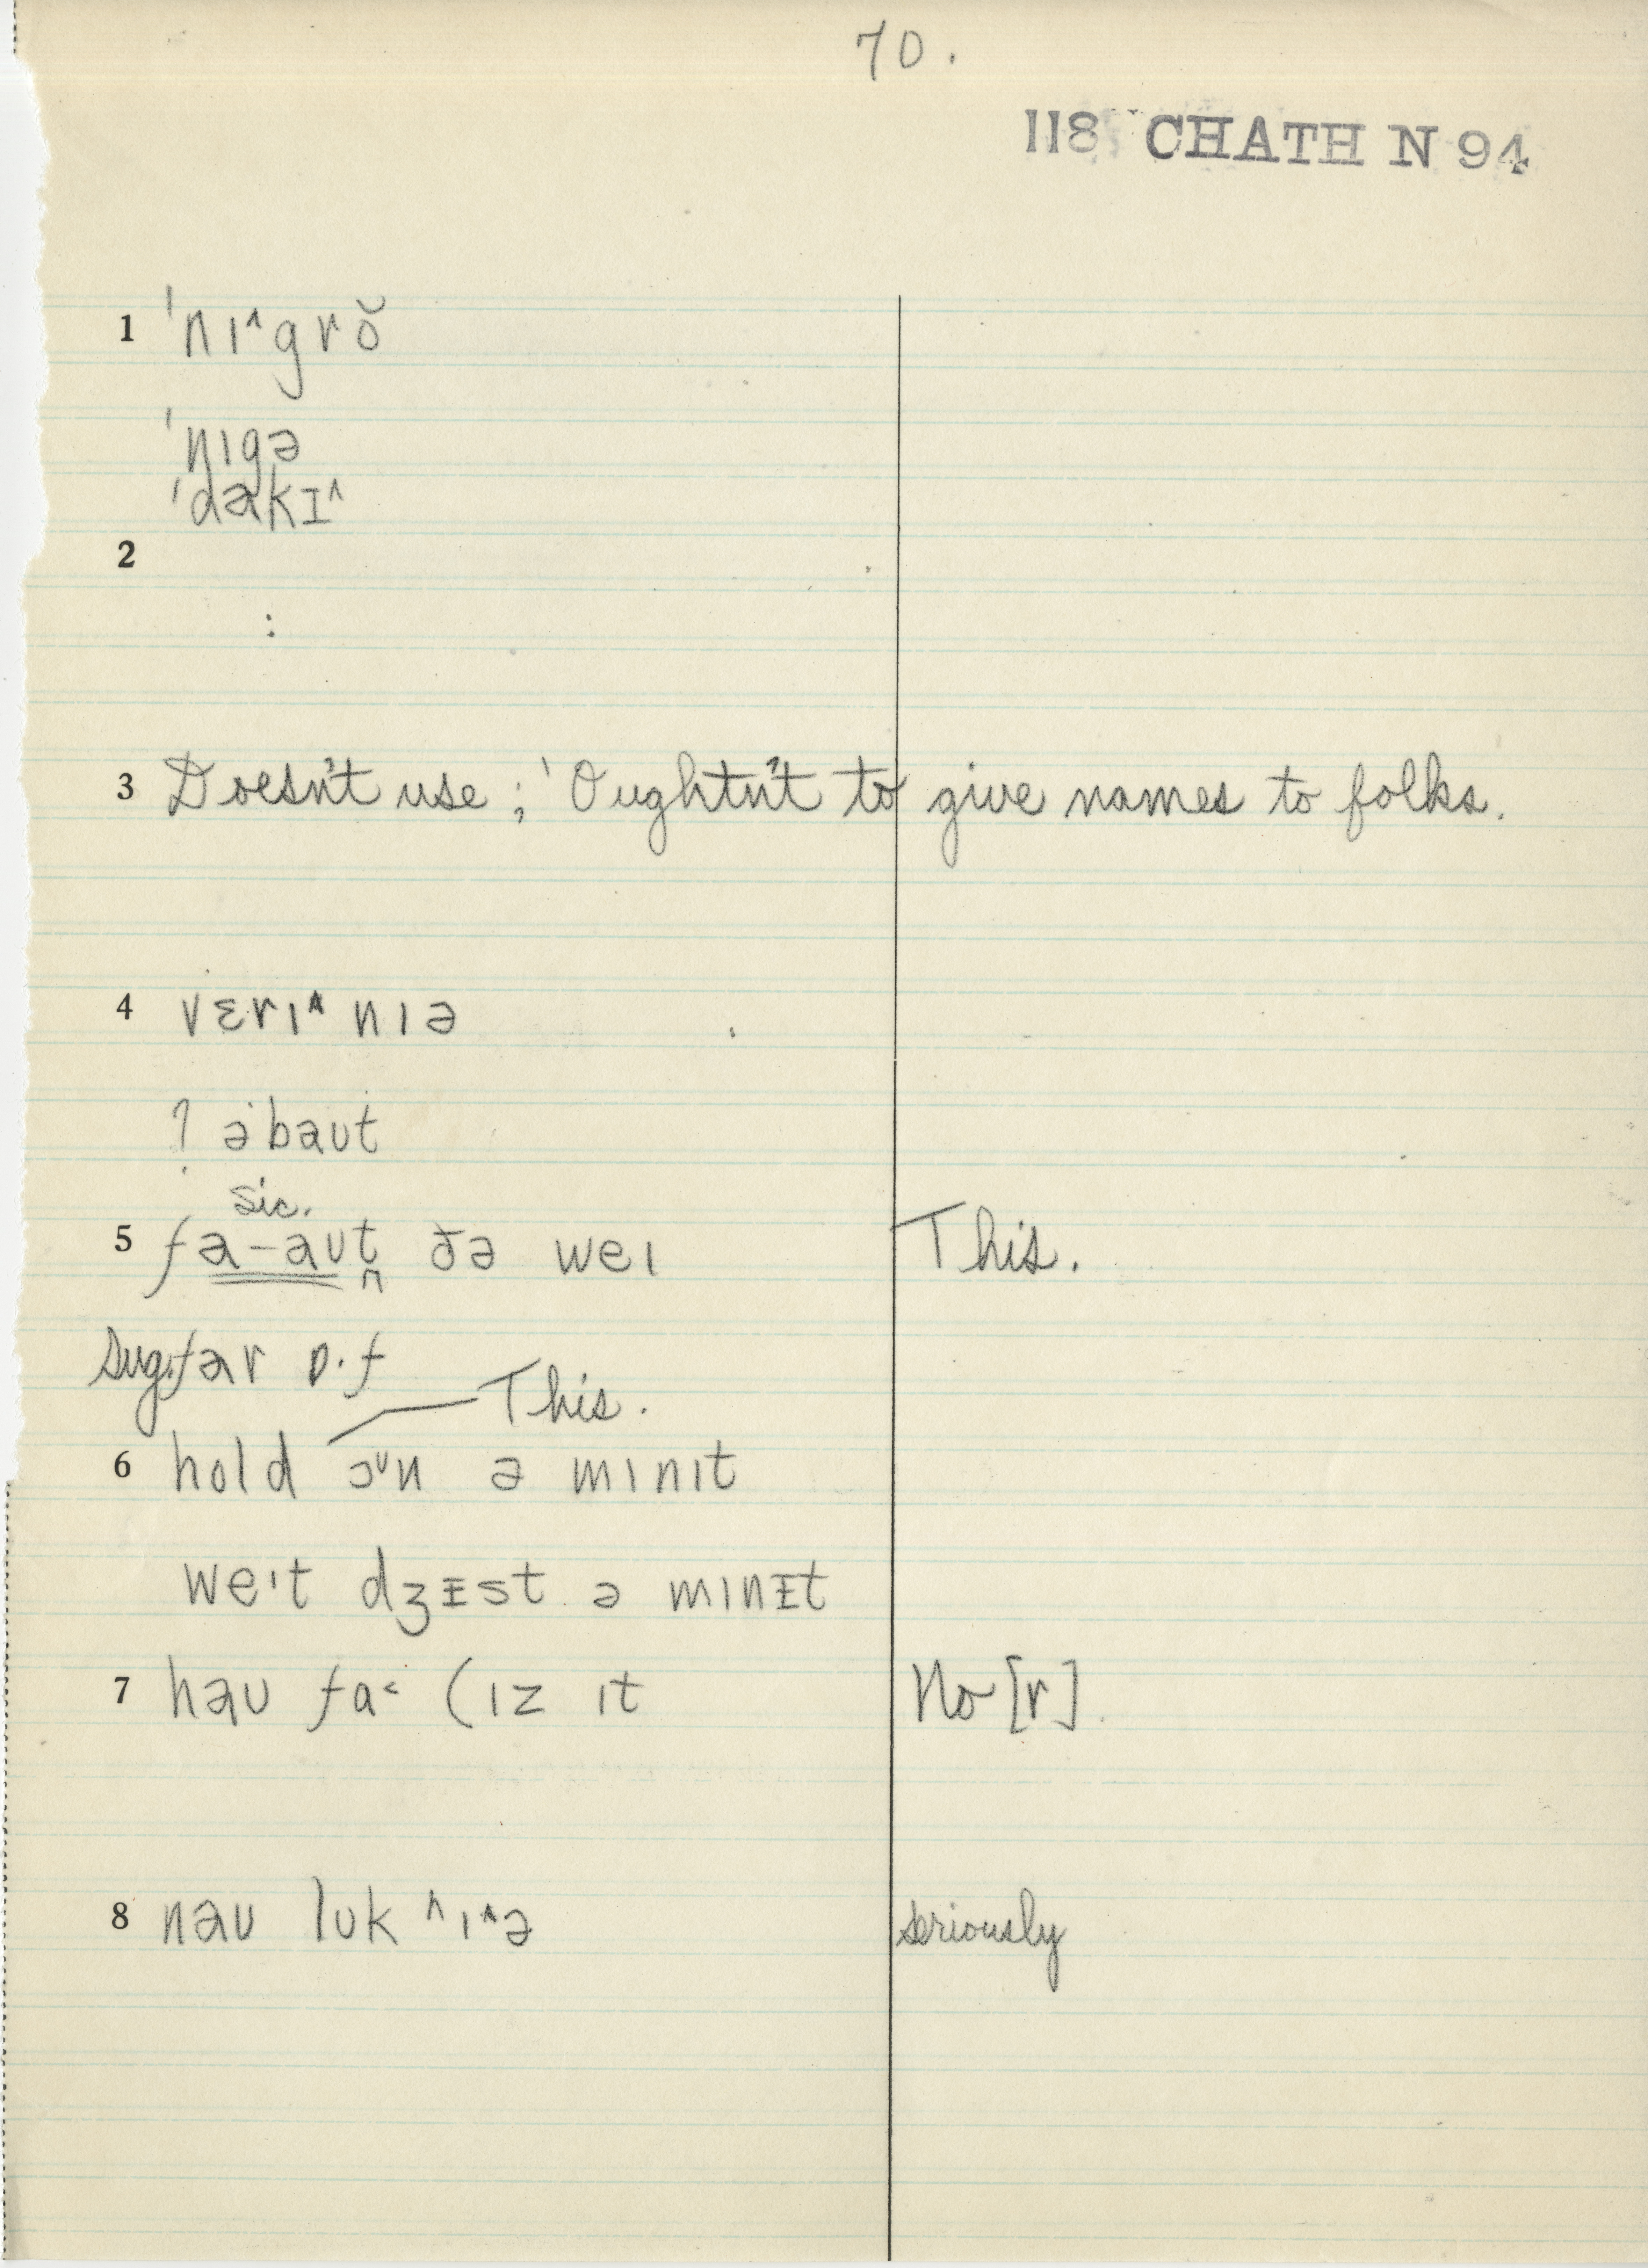 70.
118 CHATH N 94
1 ˈnɪ^grŏ
ˈnɪgə
ˈdakɪ^
2
:
3 Doesn't use; 'Oughtn't to give names to folks.
4 vɛrɪ^ nɪə
? əˈbaut
sic.
5 fa-aut ðə weɪ This.
Sug. far ɒ·f
This.
6 hold ɔ^ʊn ə mɪnɪt
weˈt dʒɪst ə mɪnɪt
7 haʊ fa< (ɪz ɪt No [r].
8 naʊ lʊk ^ɪ^ə seriously